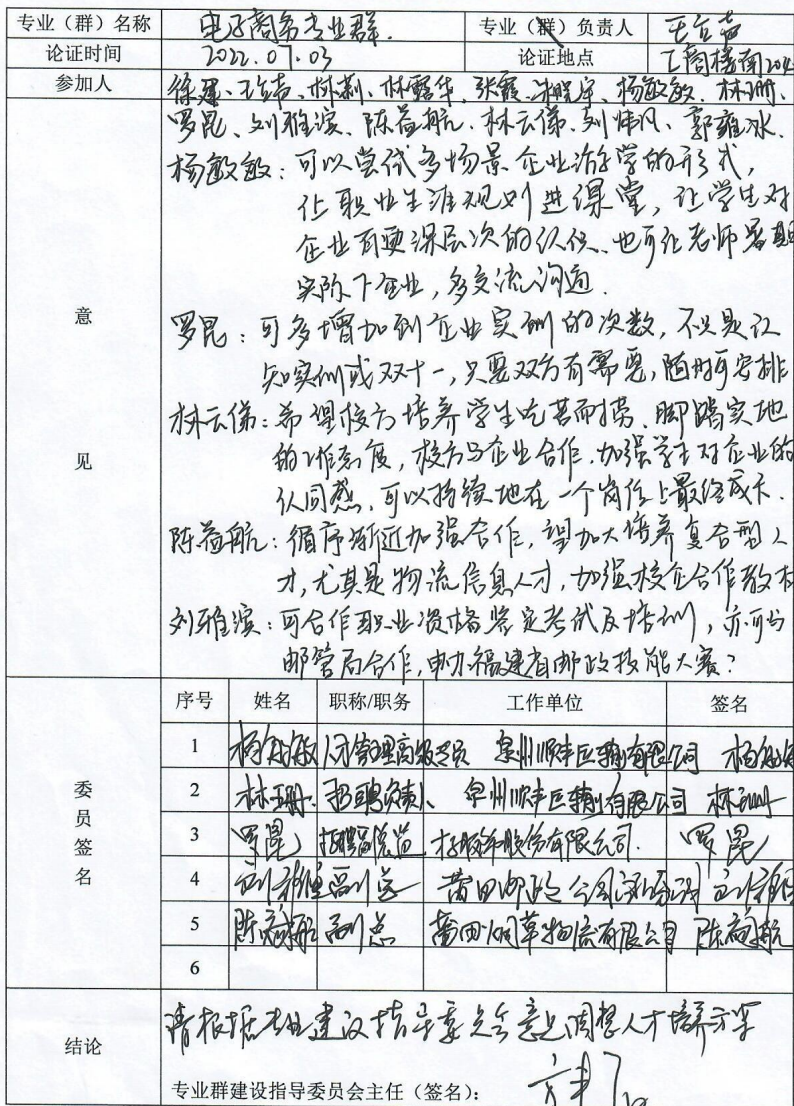 专业（群）名称 电子商务专业群. 专业（群）负责人
论证时间 2022.07.03 论证地点 工商楼南204
参加人 徐 、 、林莉、林露华、张霞、 、杨敏敏、林珊、
罗昆、刘雅滨、陈益航、林云俤、刘炜凡、郭雍冰.
意见
杨敏敏：可以尝试多场景企业游学的形式，
让职业生涯规划进课堂，让学生对
企业有更深层次的认知、也可让老师暑期
实际下企业，多交流沟通.
罗昆：可多增加到企业实训的次数，不只是认
知实训或双十一，只要双方有需要，随时可安排
林云俤：希望校方培养学生吃苦耐劳、脚踏实地
的工作态度，校方与企业合作，加强学生对企业的
认同感，可以持续地在一个岗位上最终成长.
陈益航：循序渐近加强合作，望加大培养复合型人
才，尤其是物流信息人才，加强校企合作教材
刘雅滨：可合作职业资格鉴定考试及培训，亦可与
邮管局合作，申办福建省邮政技能大赛？
委员签名
序号 姓名 职称/职务 工作单位 签名
1 杨敏敏 人才管理高级专员 泉州顺丰运输有限公司 杨敏敏
2 林珊 招聘负责人 泉州顺丰运输有限公司 林珊
3 罗昆 招聘 股份有限公司. 罗昆
4 刘雅滨 副总 莆田邮政公司 刘雅滨
5 陈益航 副总 莆田烟草物流有限公司 陈益航
6
结论 请根据专业建设指导委员会意见调整人才培养方案
专业群建设指导委员会主任（签名）：